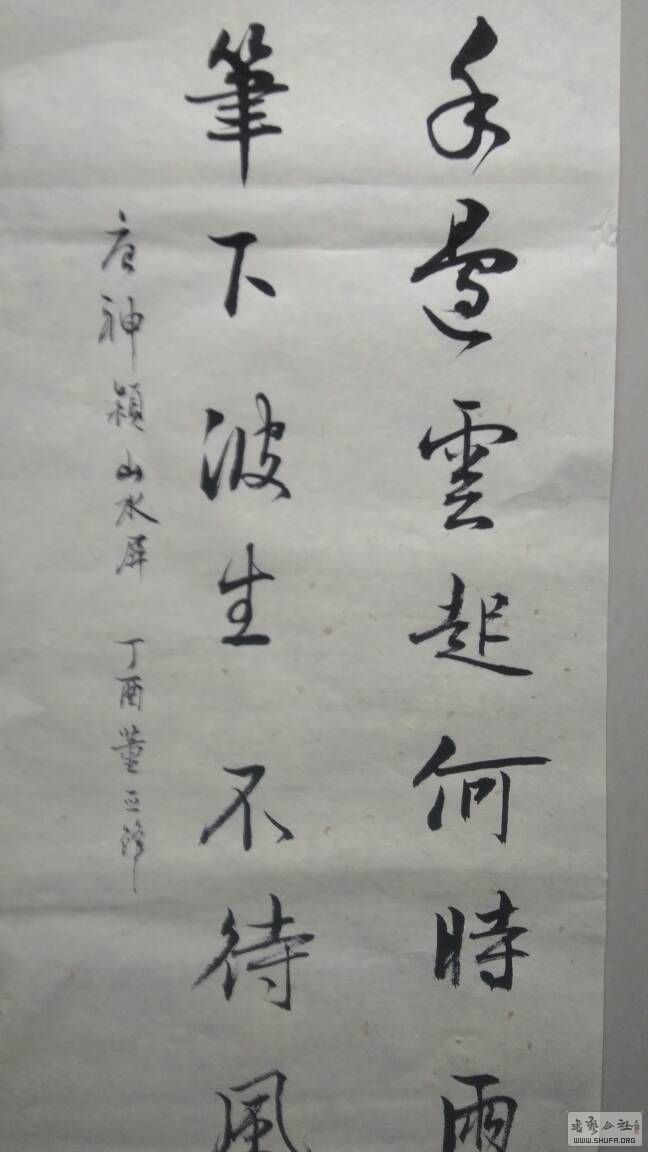 手邊雲起何時雨
筆下波生不待風
唐神穎山水屏 丁酉董
書藝公社
WWW.SHUFA.ORG